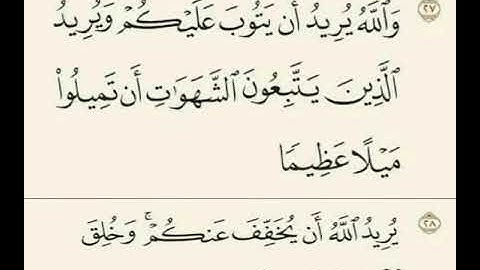 ٢٧ وَٱللَّهُ يُرِيدُ أَن يَتُوبَ عَلَيۡكُمۡ وَيُرِيدُ
ٱلَّذِينَ يَتَّبِعُونَ ٱلشَّهَوَٰتِ أَن تَمِيلُواْ
مَيۡلًا عَظِيمٗا
٢٨ يُرِيدُ ٱللَّهُ أَن يُخَفِّفَ عَنكُمۡۚ وَخُلِقَ